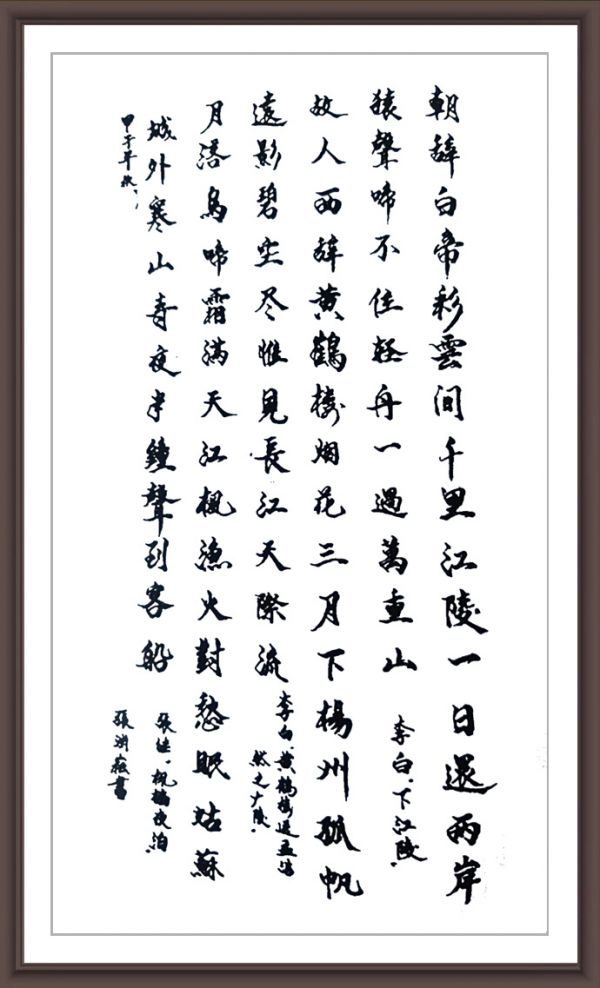 朝辞白帝彩雲间千里江陵一日還兩岸
猿聲啼不住轻舟一過萬重山
李白·下江陵
故人西辞黄鶴楼烟花三月下楊州孤帆
遠影碧空尽惟見長江天際流
李白·黄鶴楼送孟浩
然之广陵
月落烏啼霜滿天江枫漁火對愁眠姑蘇
城外寒山寺夜半鐘聲到客船
張继·枫橋夜泊
甲午年秋
張 書